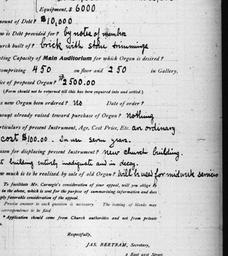 Equipment, $ 6000
Amount of Debt? $10,000
How is Debt provided for? by notes of member
Church built of? brick with stone trimmings
Seating Capacity of Main Auditorium for which Organ is desired?
comprising 450 on floor and 250 in Gallery.
Price of proposed Organ? $2500.00
(Form should not be returned till this has been enquired into and settled.)
new Organ been ordered? No Date of order?
Amount already raised toward purchase of Organ? nothing
Particulars of present Instrument, Age, Cost Price, Etc. an ordinary
cost $100.00. In use seven years.
Reason for displacing present Instrument? new church building
building entirely inadequate and in decay.
How much is to be realized by sale of old Organ? Will be used for midweek services
To facilitate Mr. Carnegie's consideration of your appeal, will you oblige by
in the above, which is sent for the purpose of summarizing information and does
imply favorable consideration of the appeal.
Precise answer to each question is necessary. The issuing of blanks may
correspondence to be filed
* Application should come from Church authorities and not from private
Respectfully,
JAS. BERTRAM, Secretary,
East 91st Street